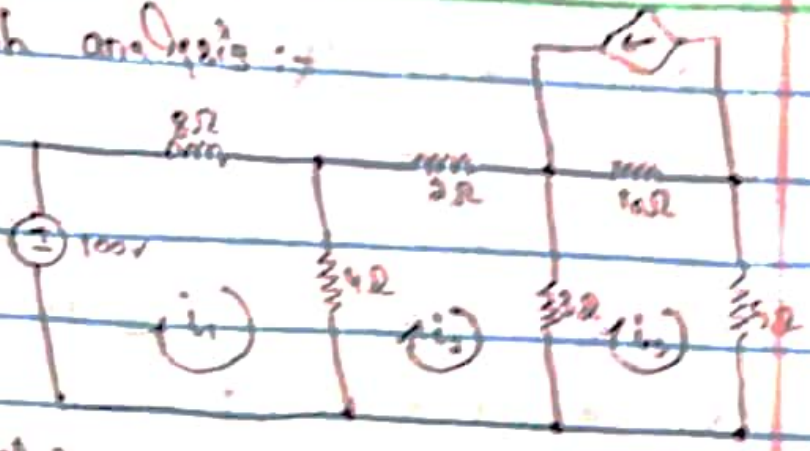 h analysis :-
8Ω
2Ω
10Ω
100V
4Ω
2Ω
5Ω
i₁
i₂
i₃